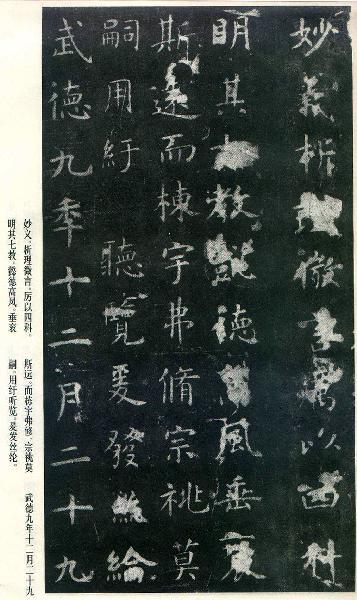 妙義析理微言厲以四科
明其七教懿德高風垂裒
斯遠而棟宇弗脩宗祧莫
嗣用紆 聽覽爰發絲綸
武德九年十二月二十九
妙义，析理微言，厉以四科。
明其七教，懿德高风，垂裒
斯远。而栋宇弗修，宗祧莫
嗣。用纡听览，爰发丝纶。
武德九年十二月二十九